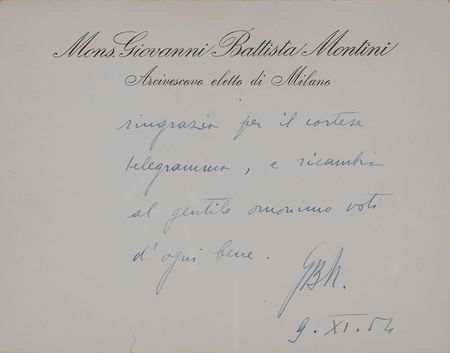 Mons. Giovanni Battista Montini
Arcivescovo eletto di Milano
ringrazia per il cortese
telegramma, e ricambia
al gentile omonimo voti
d'ogni bene.
GBM.
9. XI. 54